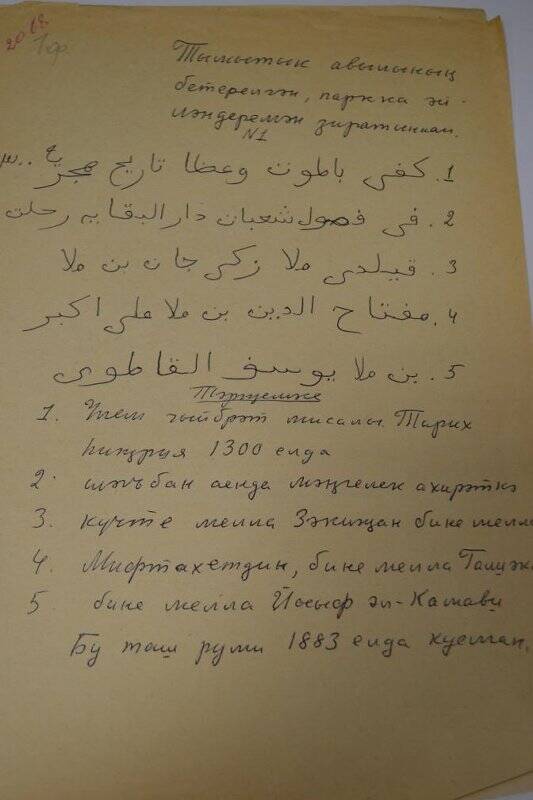 2018
1ф.
Тымытык авылының
бетерелгән, паркка әй-
ләндерелгән зиратыннан.
N1
1. كفى بالموت وعظا تاريخ هجريه ١٣٠٠
2. فى فصول شعبان دار البقايه رحلت
3. قيلدى ملا زكى جان بن ملا
4. مفتاح الدين بن ملا على اكبر
5. بن ملا يوسف القاطوى
Тәрҗемәсе
1. Үлем гыйбрәт мисалы. Тарих
һиҗрия 1300 елда
2. шәгъбан аенда мәңгелек ахирәткә
3. күчте мелла Зәкиҗан бине мелла
4. Мифтахетдин, бине мелла Галиәк
5 бине мелла Йосыф әл-Катави
Бу таш руми 1883 елда куелган.